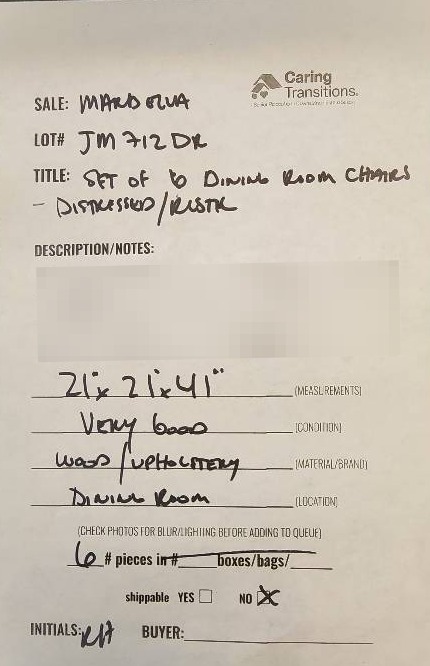 Caring
Transitions.
SALE: MARDELUA
LOT# JM712DR
TITLE: SET OF 6 DINING ROOM CHAIRS
- DISTRESSED/RUSTK
DESCRIPTION/NOTES:
21"x 21"x 41" (MEASUREMENTS)
VERY GOOD (CONDITION)
WOOD/UPHOLSTERY (MATERIAL/BRAND)
DINING ROOM (LOCATION)
(CHECK PHOTOS FOR BLUR/LIGHTING BEFORE ADDING TO QUEUE)
6 # pieces in # boxes/bags/
shippable YES NO
INITIALS: BUYER: